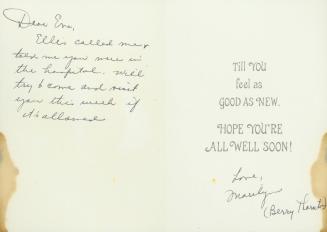 Dear Eva,
Ellis called me &
told me you were in
the hospital. Will
try to come and visit
you this week if
it's allowed
Till You
feel as
GOOD AS NEW.
HOPE YOU'RE
ALL WELL SOON!
Love,
Marilyn
(Berry